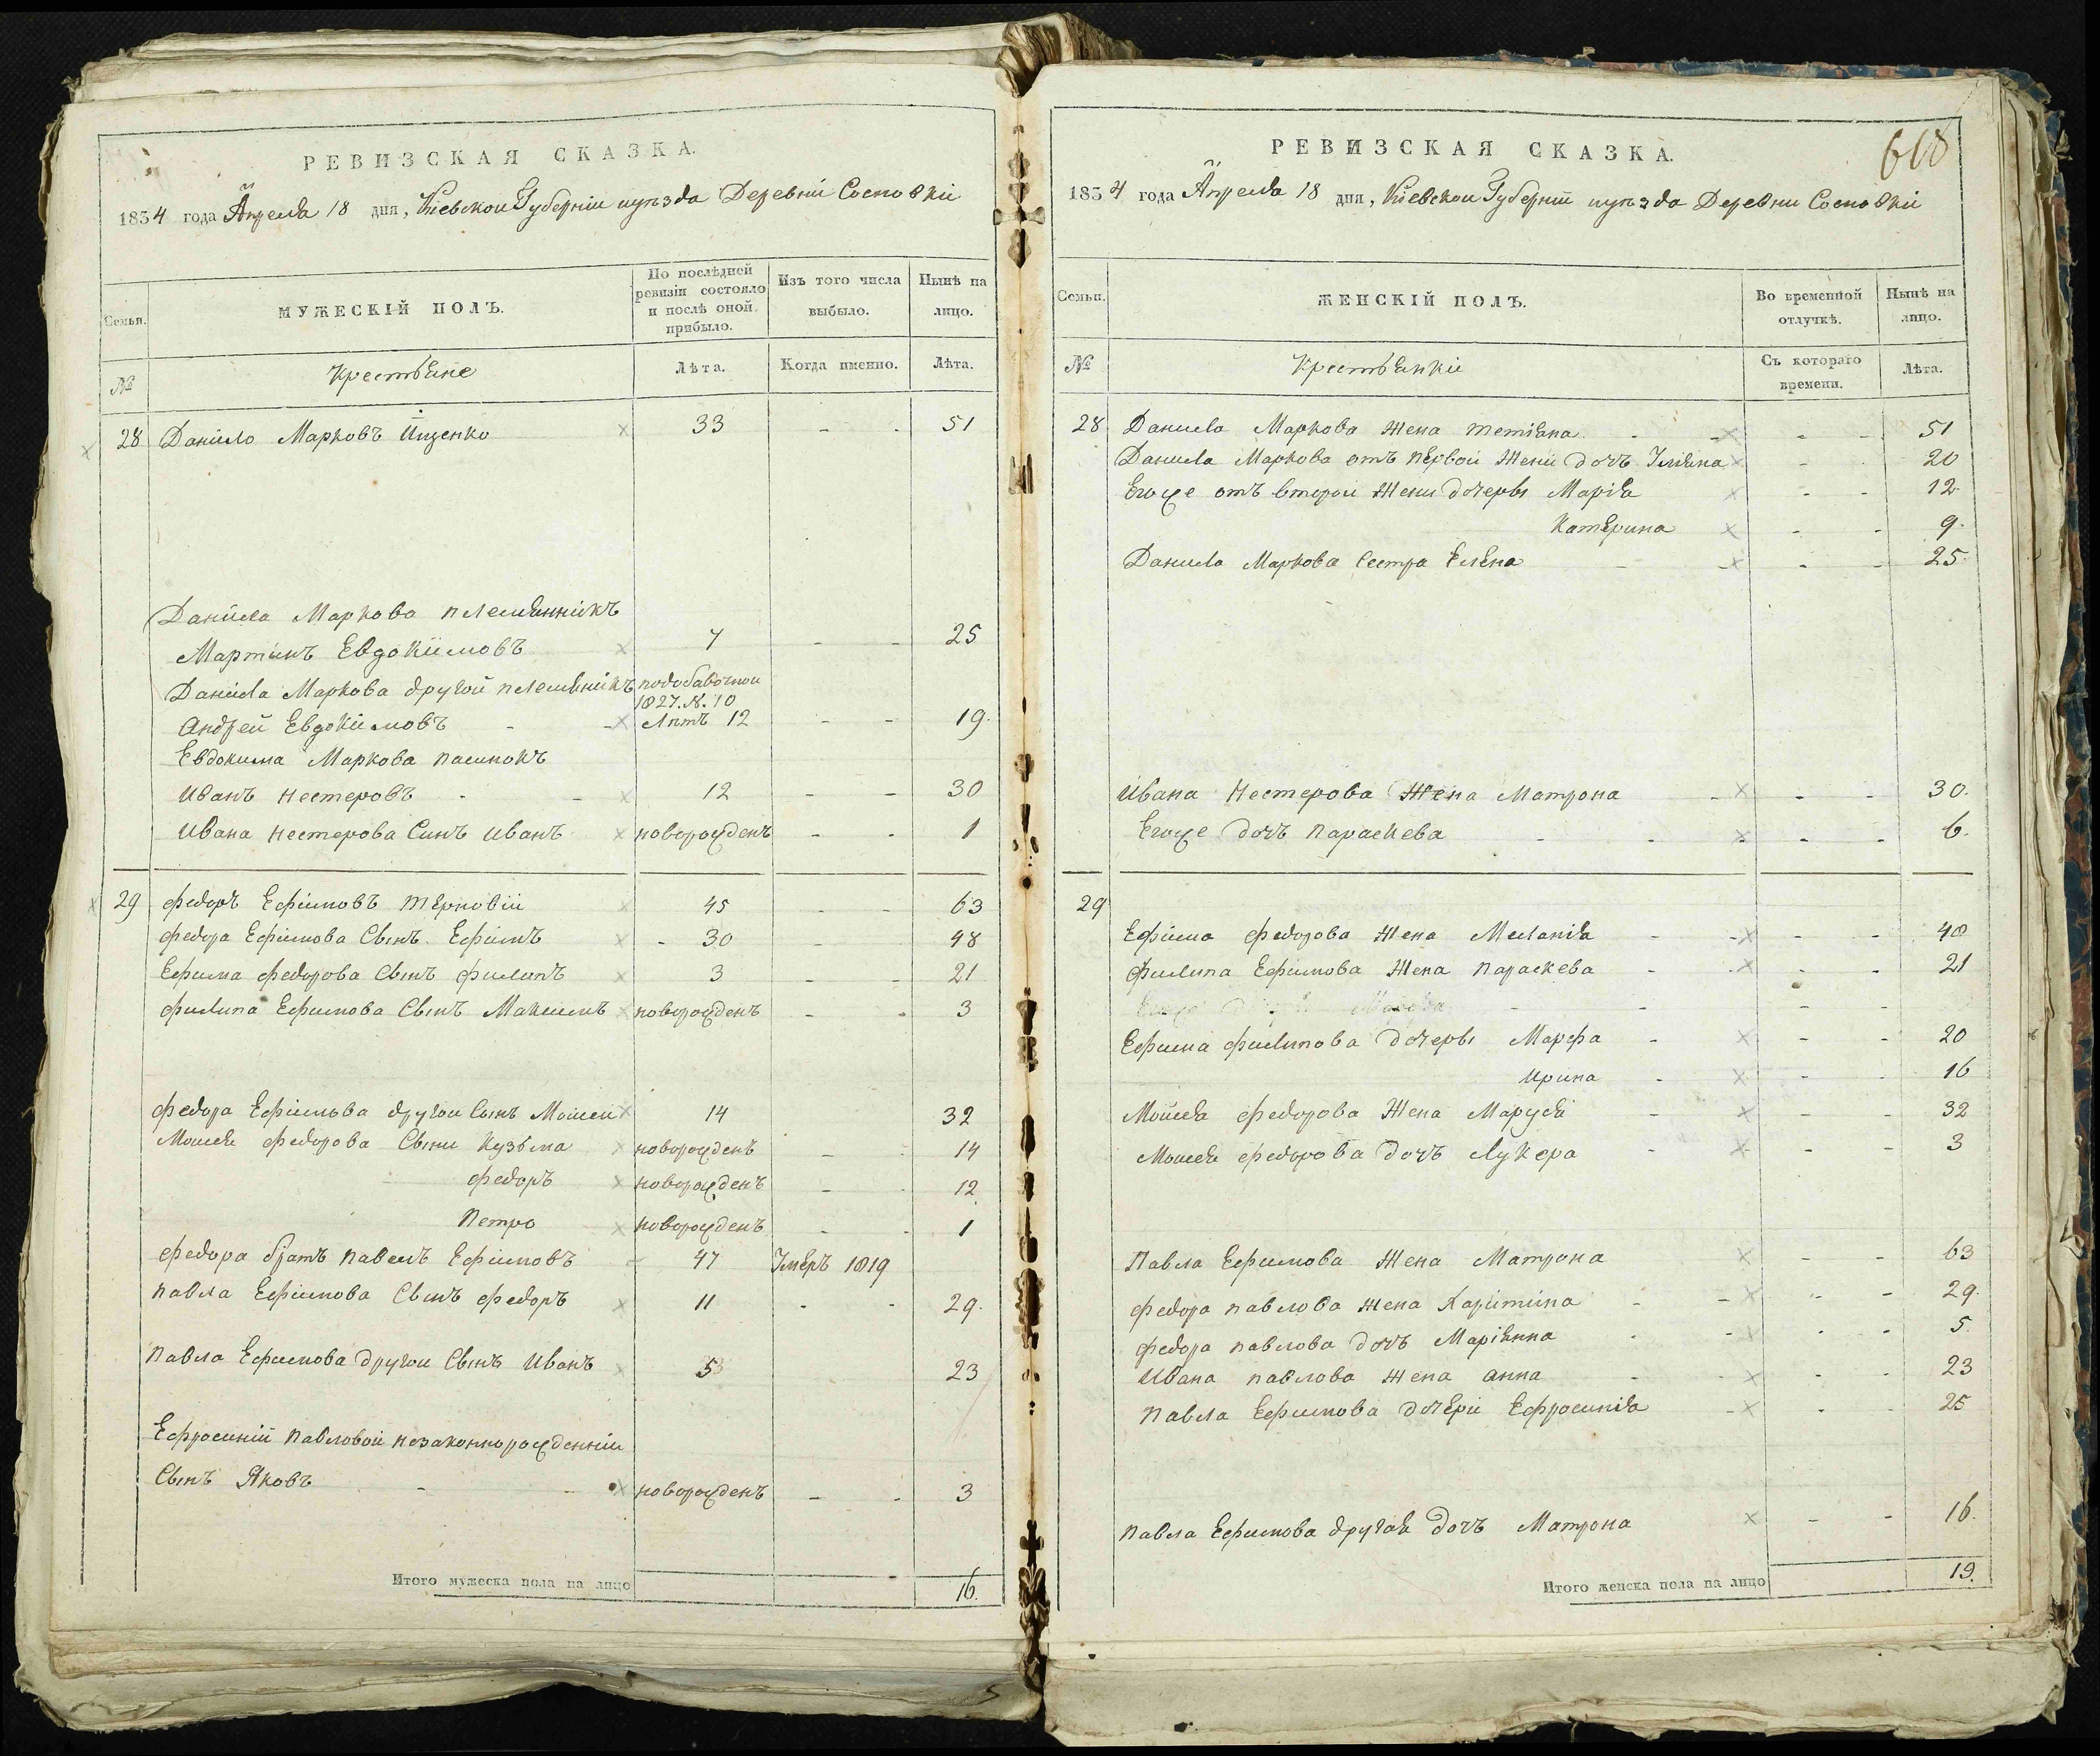 РЕВИЗСКАЯ СКАЗКА.
1834 года Апреля 18 дня, Кіевской Губерніи иуѣзда Деревни Сосновкі
Семьи.
МУЖЕСКІЙ ПОЛЪ.
По послѣдней ревизіи состояло и послѣ оной прибыло.
Изъ того числа выбыло.
Нынѣ на лицо.
№
Крестьяне
Лѣта.
Когда именно.
Лѣта.
28 Данило Марковъ Ищенко 33 - - 51
Данила Маркова племянникъ
Мартинъ Евдокимовъ 7 - - 25
Данила Маркова другой племяникъ подобавочной
1827. №. 10
Андрей Евдокимовъ - - Лѣтъ 12 - - 19.
Евдокима Маркова пасинокъ
Иванъ Нестеровъ - - 12 - - 30
Ивана Нестерова Синъ Иванъ новорожденъ - - 1
29 Федоръ Ефимовъ Терновій 45 - - 63
Федора Ефимова Сынъ Ефимъ - 30 - 48
Ефима Федорова Сынъ Филипъ 3 - - 21
Филипа Ефимова Сынъ Максимъ новорожденъ - - 3
Федора Ефимова другой Сынъ Моисей 14 32
Моисея Федорова Сыни Кузьма новорожденъ - - 14
Федоръ новорожденъ - - 12
Петро новорожденъ - - 1
Федора братъ Павелъ Ефимовъ 47 Умеръ 1819
Павла Ефимова Сынъ Федоръ 11 - - 29.
Павла Ефимова другой Сынъ Иванъ 5 23
Ефросиній Павловой незаконнорожденній
Сынъ Яковъ - - новорожденъ - - 3
Итого мужеска пола на лицо - 16.
668
РЕВИЗСКАЯ СКАЗКА.
1834 года Апреля 18 дня, Кіевской Губерніи иуѣзда Деревни Сосновкі
Семьи.
ЖЕНСКІЙ ПОЛЪ.
Во временной отлучкѣ.
Нынѣ на лицо.
№
Крестьянкі
Съ котораго времени.
Лѣта.
28 Данила Маркова Жена Тетіяна - - - - 51
Данила Маркова отъ первой Жени дочь Уліяна - - 20
Егоже отъ второй Жени дочеры Марія - - 12
Катерина - - 9.
Данила Маркова Сестра Елена - - - - 25.
Ивана Нестерова Жена Матрона - - - 30.
Егоже дочъ Параскева - - - - - 6.
29
Ефима Федорова Жена Меланія - - - - 40
Филипа Ефимова Жена Параскева - - - - 21
Ефима Филипова дочеры Марфа - - - 20
Ирина - - - 16
Моисея Федорова Жена Маруся - - - 32
Моисея Федорова дочъ Лукера - - - 3
Павла Ефимова Жена Матрона - - 63
Федора Павлова Жена Харитина - - - - 29.
Федора Павлова дочъ Маріянна - - - - 5.
Ивана Павлова Жена Анна - - - - 23
Павла Ефимова дочері Ефросинія - - - 25
Павла Ефимова другая дочъ Матрона - - 16.
Итого женска пола на лицо 19.